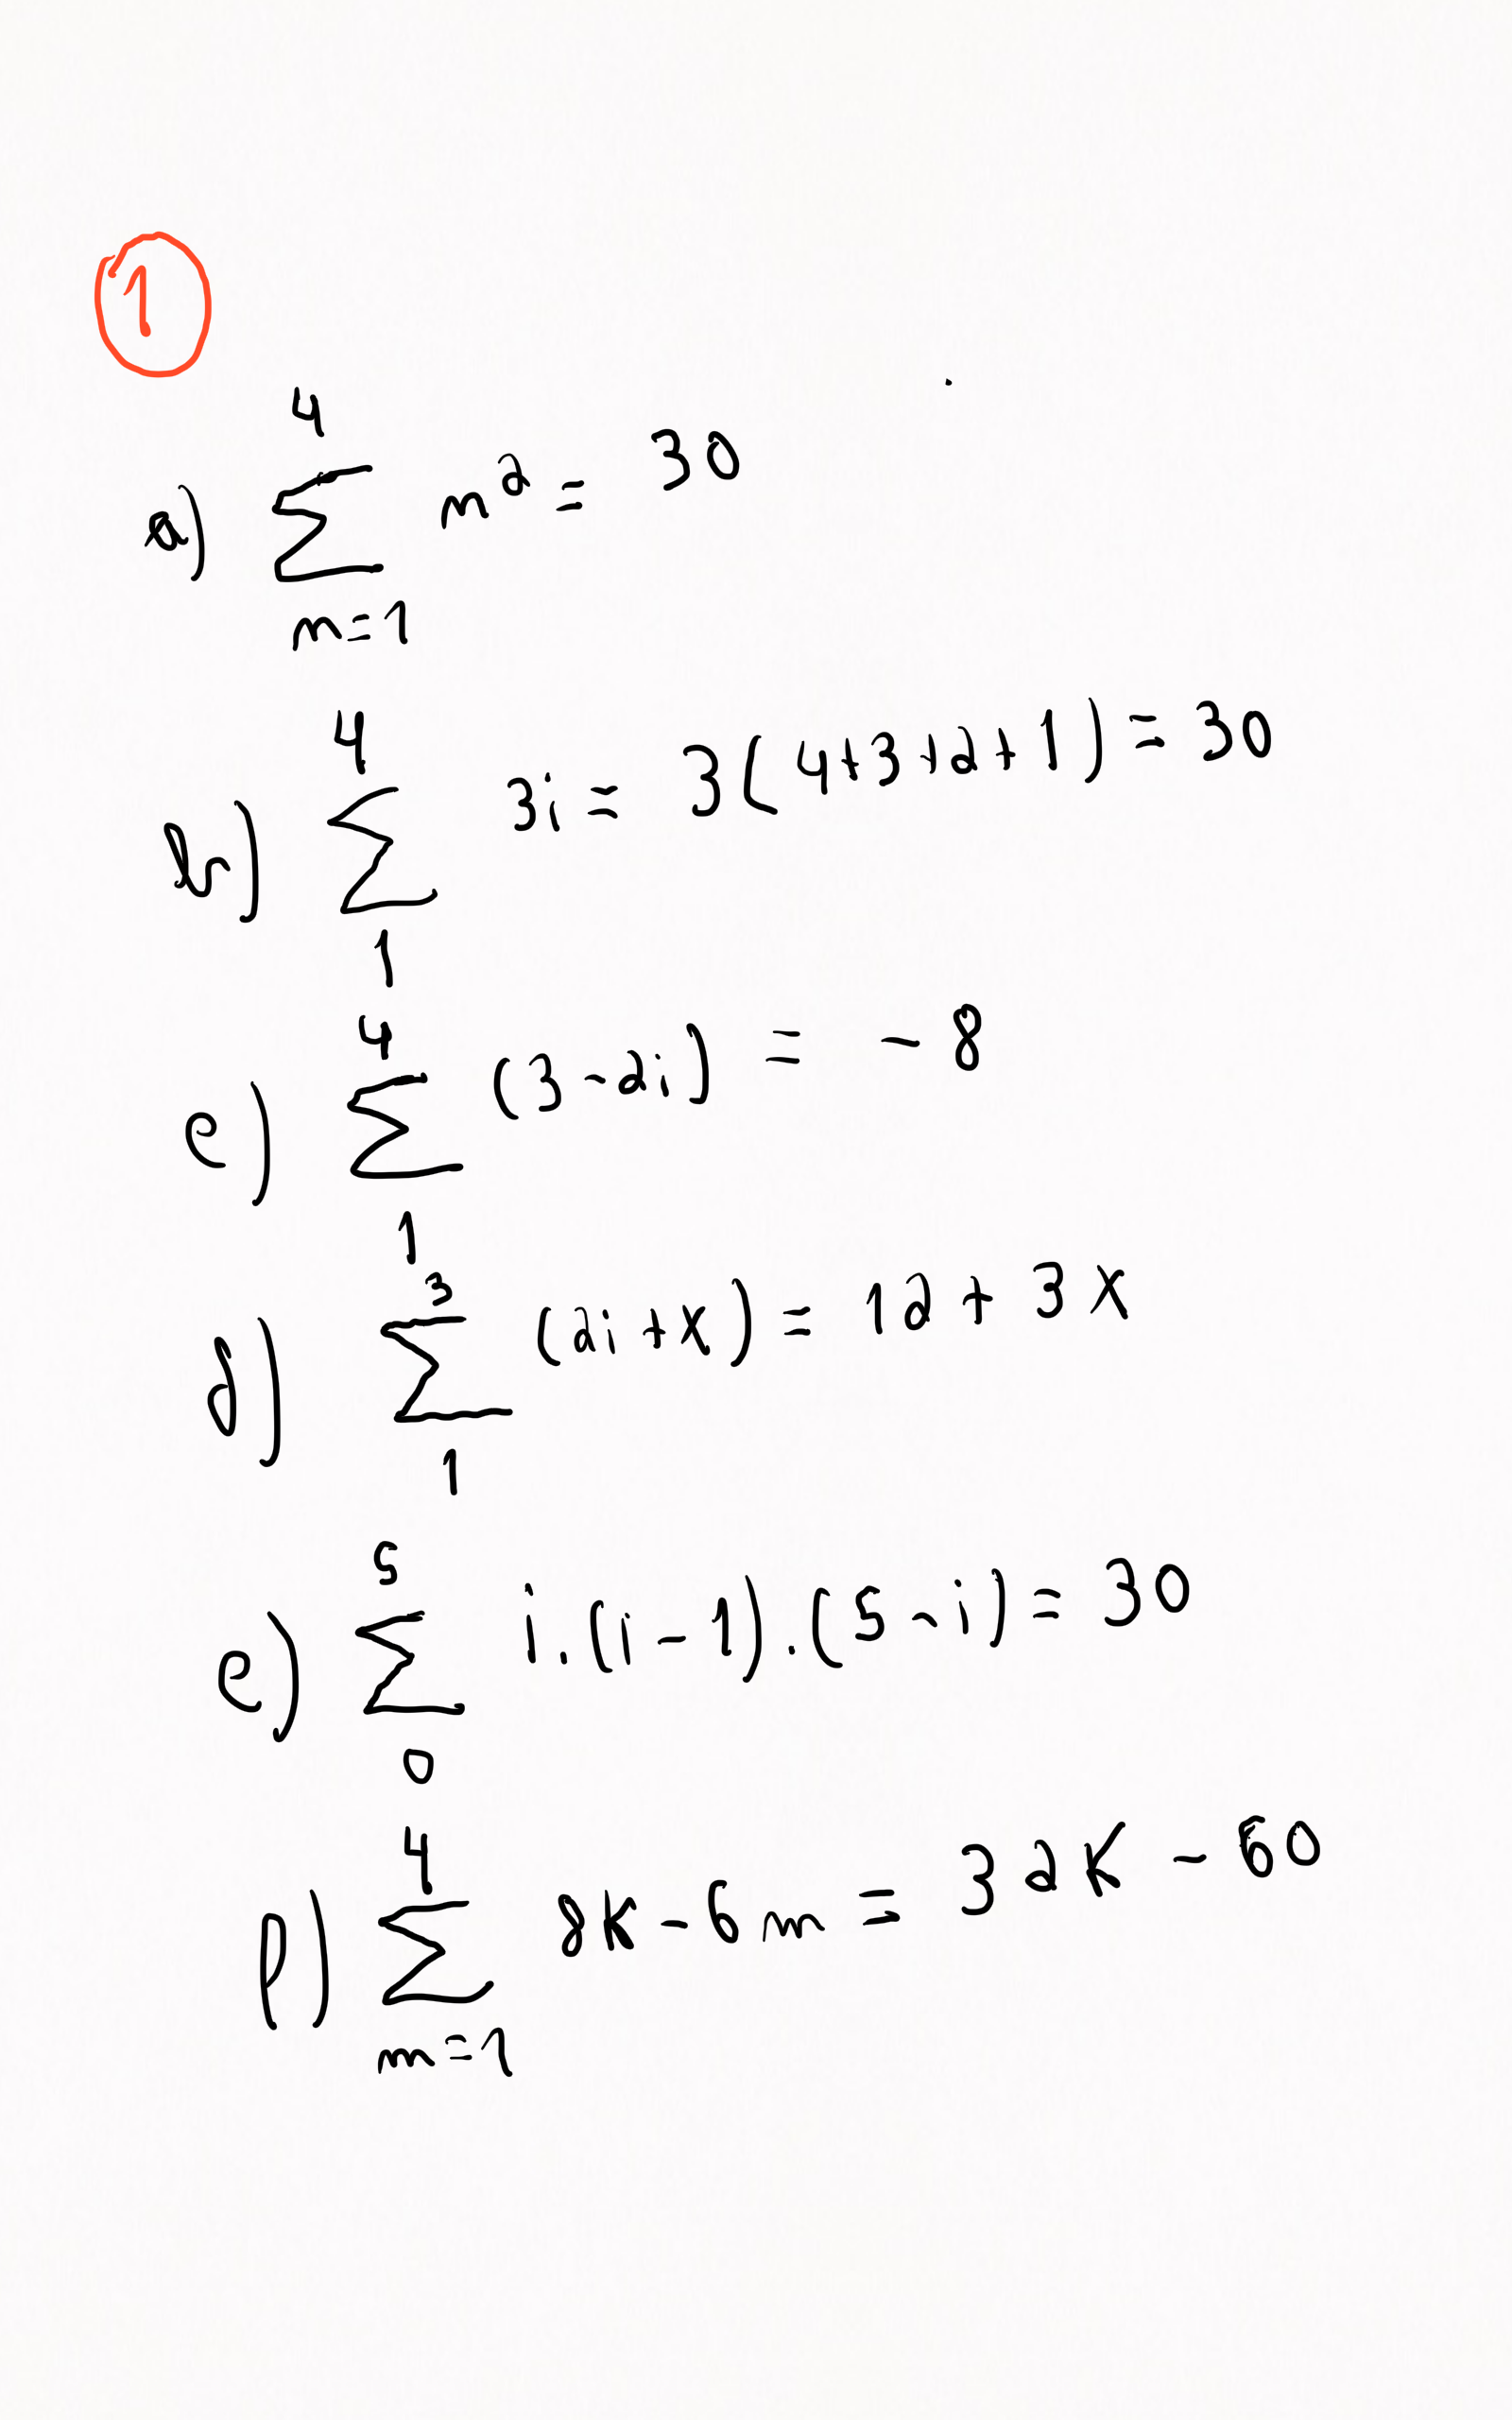 1
a) \sum_{n=1}^{4} n^2 = 30
b) \sum_{1}^{4} 3i = 3(4+3+2+1) = 30
c) \sum_{1}^{4} (3-2i) = -8
d) \sum_{1}^{3} (2i+x) = 12 + 3x
e) \sum_{0}^{5} i.(i-1).(5-i) = 30
f) \sum_{m=1}^{4} 8k-6m = 32k-60